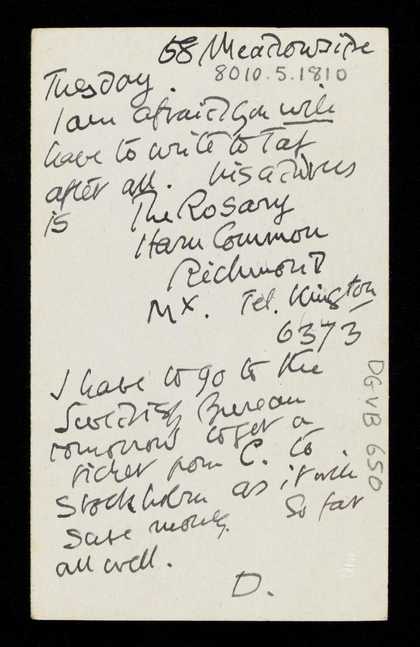 58 Meadowside
8010.5.1810
Tuesday.
I am afraid you will
have to write to Taf
after all. his address
is The Rosary
Ham Common
Richmond
Mx. Tel. Kingston
6373
I have to go to the
Swedish Bureau
tomorrow to get a
ticket from C. to
Stockholm as it will
save money. So far
all well.
D.
DGVB 650